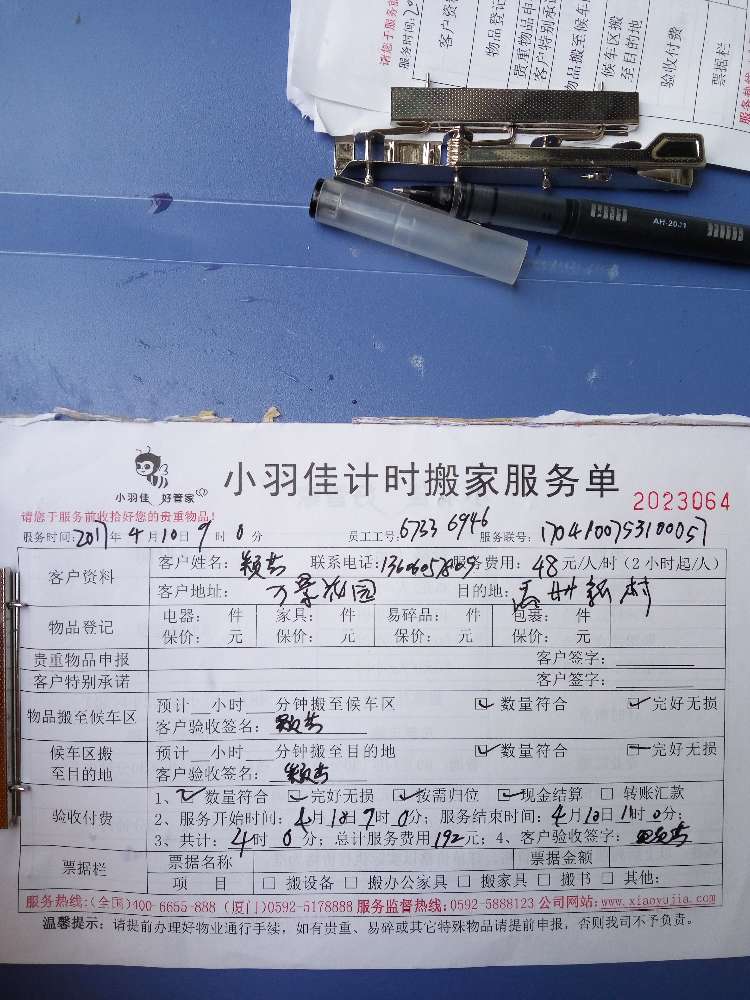 请您于服务前
服务时间:20
客户资料
物品登记
贵重物品申
客户特别承诺
物品搬至候车
候车区搬
至目的地
验收付费
票据栏
AH-2021
小羽佳 好管家
小羽佳计时搬家服务单
2023064
请您于服务前收拾好您的贵重物品!
服务时间:2017年4月10日9时0分 员工工号:6733 6946 服务联号:170410075310005
客户资料 客户姓名: 联系电话: 服务费用:48元/人/时(2小时起/人)
客户地址:万景花园 目的地: 州新村
物品登记 电器: 件 家具: 件 易碎品: 件 包裹: 件
保价: 元 保价: 元 保价: 元 保价: 元
贵重物品申报 客户签字:
客户特别承诺 客户签字:
物品搬至候车区 预计 小时 分钟搬至候车区 ☑ 数量符合 ☑ 完好无损
客户验收签名:
候车区搬至目的地 预计 小时 分钟搬至目的地 ☑ 数量符合 ☑ 完好无损
客户验收签名:
验收付费 1、☑ 数量符合 ☑ 完好无损 ☑ 按需归位 ☑ 现金结算 □ 转账汇款
2、服务开始时间:4月10日7时0分; 服务结束时间:4月10日11时0分;
3、共计:4时0分; 总计服务费用192元; 4、客户验收签字:
票据栏 票据名称 票据金额
项 目 □ 搬设备 □ 搬办公家具 □ 搬家具 □ 搬书 □ 其他:
服务热线:(全国)400-6655-888 (厦门)0592-5178888 服务监督热线:0592-5888123 公司网站:www.xiaoyujia.com
温馨提示: 请提前办理好物业通行手续,如有贵重、易碎或其它特殊物品请提前申报,否则我司不予负责。